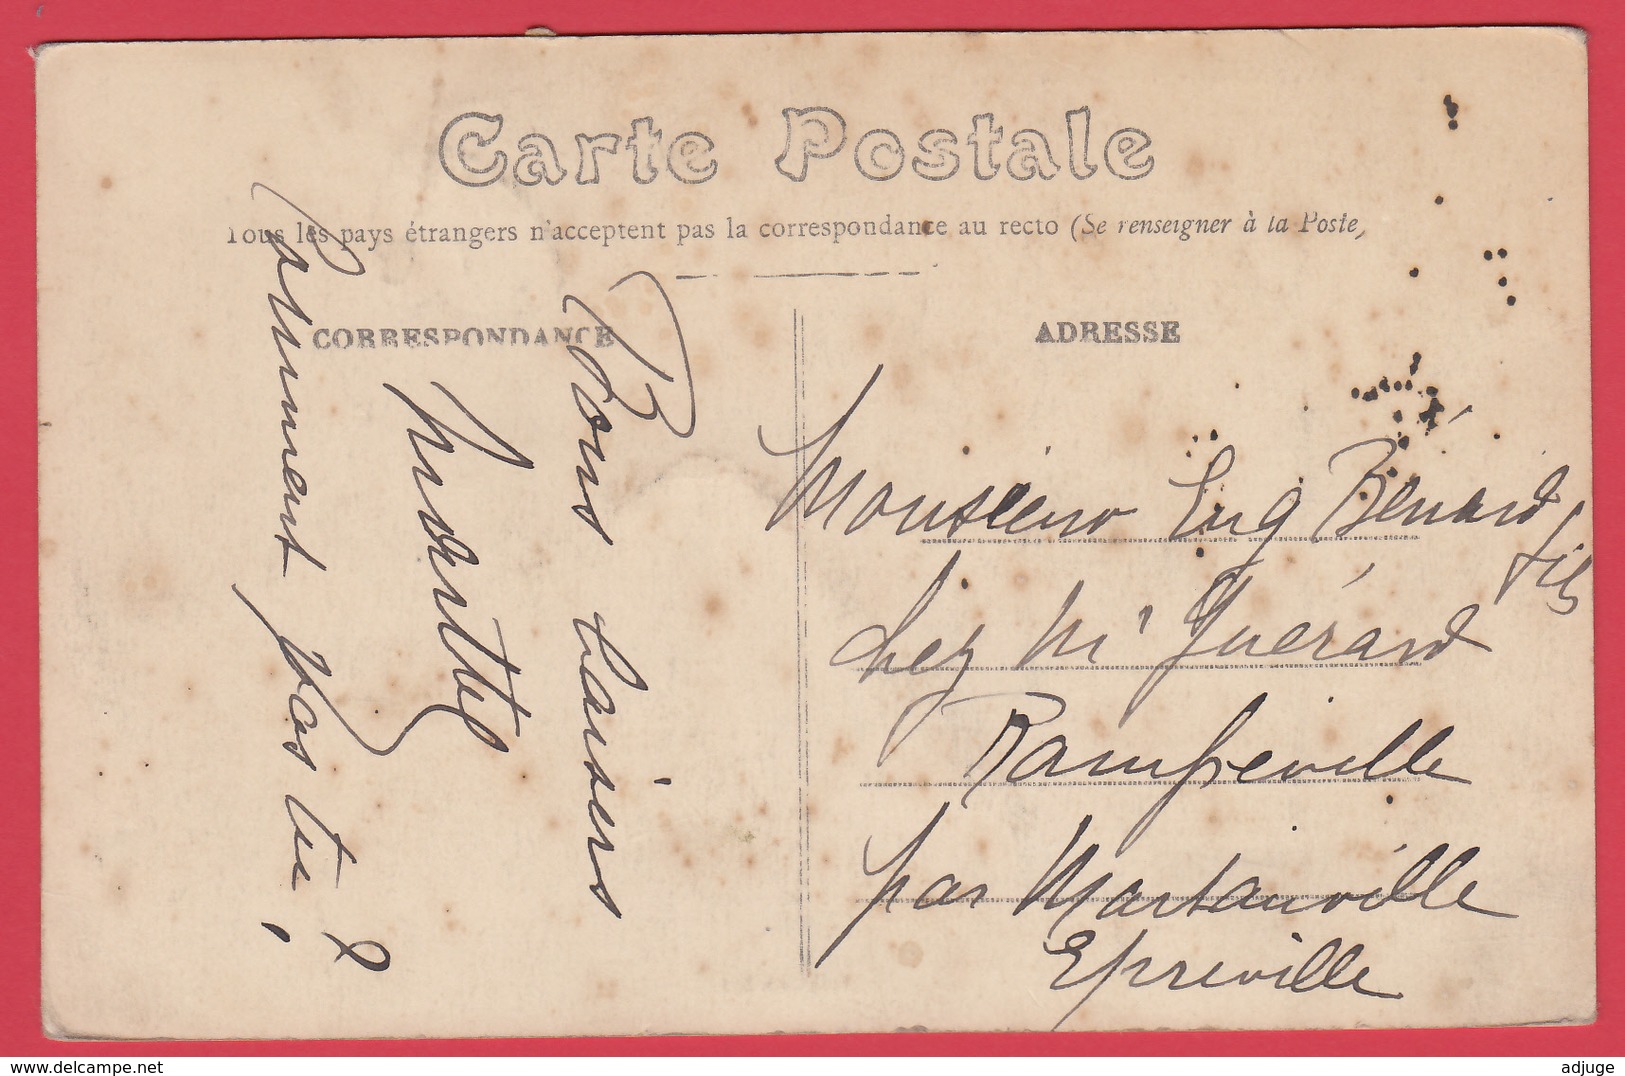 Carte Postale
Tous les pays étrangers n'acceptent pas la correspondance au recto (Se renseigner à la Poste)
CORRESPONDANCE
ADRESSE
Bons baisers
pas tu ?
Monsieur Eug Bénard
fils
chez Mr Guérard
Rampeville
par Martainville
Epreville
delcampe.net
adjuge